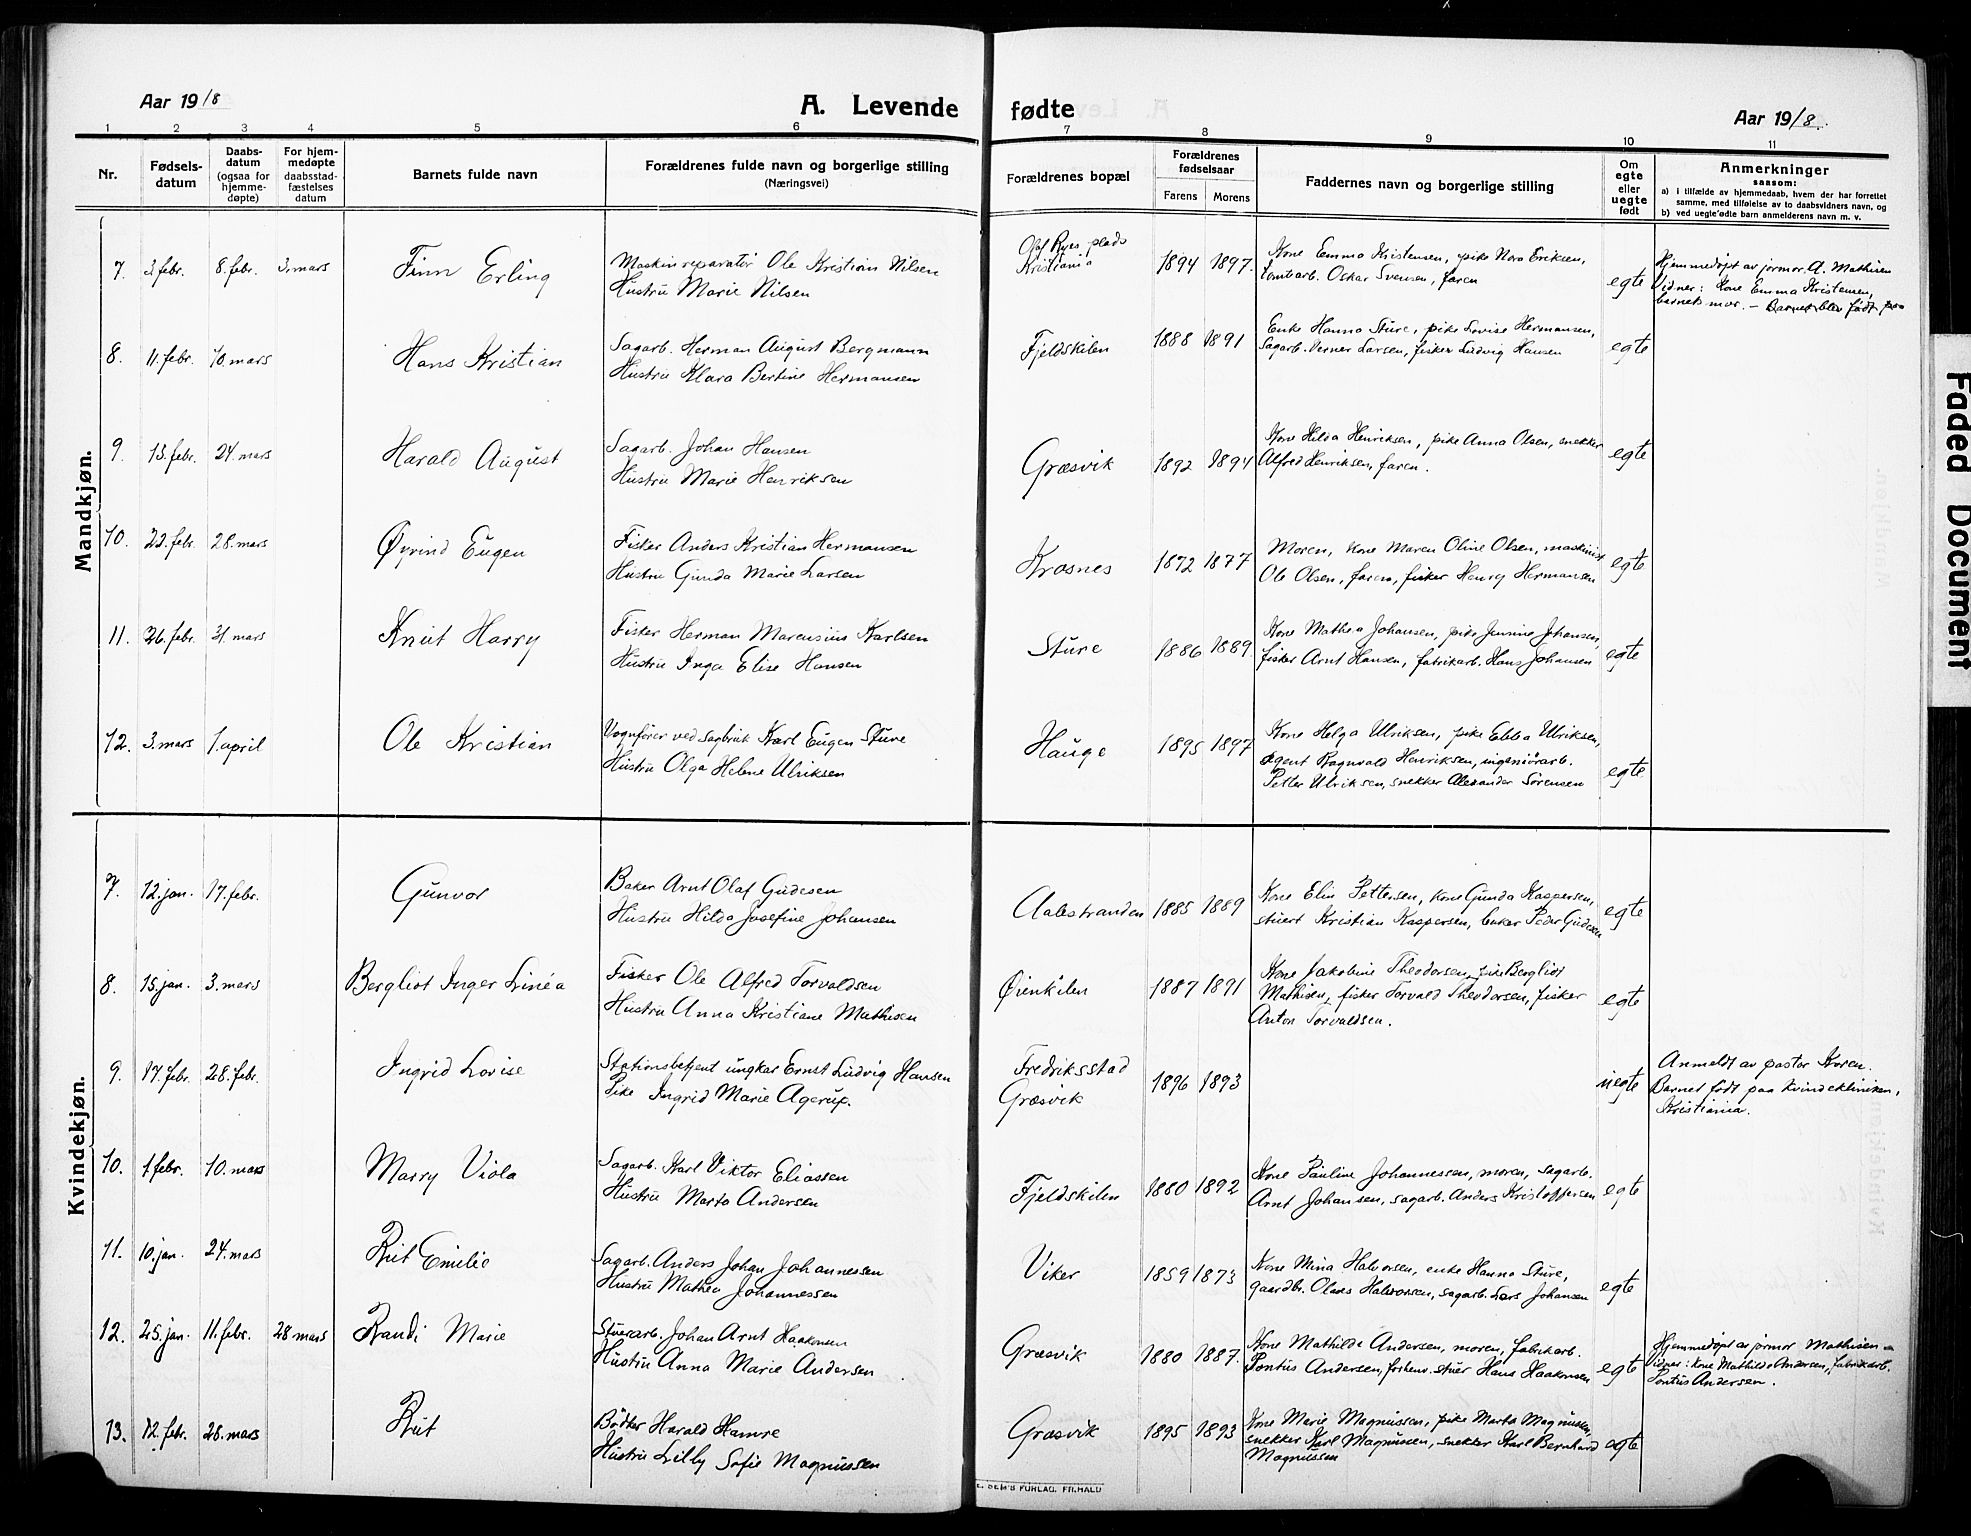 Aar 1918
A. Levende fødte
Aar 1918.
1 2 3 4 5 6 7 8 9 10 11
Nr.
Fødsels-
datum
Daabs-
datum
(ogsaa for
hjemme-
døpte)
For hjem-
medøpte
daabsstad-
fæstelses
datum
Barnets fulde navn
Forældrenes fulde navn og borgerlige stilling
(Næringsvei)
Forældrenes bopæl
Forældrenes
fødselsaar
Farens Morens
Faddernes navn og borgerlige stilling
Om
egte
eller
uegte
født
Anmerkninger
saasom:
a) i tilfælde av hjemmedaab, hvem der har forrettet
samme, med tilføielse av to daabsvidners navn, og
b) ved uegte fødte barn anmelderens navn m. v.
Mandkjøn.
7. 3. febr. 8. febr. 3. mars Finn Erling
Maskinreparatör Ole Kristian Nilsen
Hustru Marie Nilsen
Olaf Ryes plads
Kristiania
1894 1897.
Kone Emma Kristensen, pike Nora Eriksen,
tomtarb. Oskar Svensen, faren
egte
Hjemmedøpt av jormor A. Mathisen
Vidner: Kone Emma Kristensen,
barnets mor. – Barnet blev født paa
8. 11. febr. 10. mars Hans Kristian
Sagarb. Herman August Bergmann
Hustru Klara Bertine Hermansen
Fjeldskilen
1888 1891
Enke Hanna Sture, pike Lovise Hermansen,
Sagarb. Verner Larsen, fisker Ludvig Hansen
egte
9. 15. febr. 24. mars Harald August
Sagarb. Johan Hansen
Hustru Marie Henriksen
Græsvik
1892 1894
Kone Hilda Henriksen, pike Anna Olsen, snekker
Alfred Henriksen, faren.
egte
10. 22. febr. 28. mars Øyvind Eugen
Fisker Anders Kristian Hermansen
Hustru Gunda Marie Larsen
Kræsnes
1872 1877
Moren, kone Maren Oline Olsen, maskinist
Ole Olsen, faren, fisker Henry Hermansen
egte
11. 26. febr. 31. mars Knut Harry
Fisker Herman Marensius Karlsen
Hustru Inga Elise Hansen
Sture
1886 1889
Kone Mathea Johansen, pike Jensine Johansen,
fisker Arnt Hansen, fabrikarb. Hans Johansen
egte
12. 3. mars 1. april Ole Kristian
Vognfører ved sagbruk Karl Eugen Sture
Hustru Olga Helene Ulriksen
Hauge
1895 1897
Kone Helga Ulriksen, pike Ebba Ulriksen,
agent Ragnvald Henriksen, ingeniörarb.
Petter Ulriksen, snekker Alexander Sørensen
egte
Kvindekjøn.
7. 12. jan. 17. febr. Gunvor
Baker Arnt Olaf Gudesen
Hustru Hilda Josefine Johansen
Aalestranden
1885 1889
Kone Elin Pettersen, kone Gunda Kaspersen,
stuert Kristian Kaspersen, baker Peder Gudesen
egte
8. 15. jan. 3. mars Bergliot Inger Linéa
Fisker Ole Alfred Torvaldsen
Hustru Anna Kristiane Mathisen
Øienkilen
1887 1891
Kone Jakobine Theodorsen, pike Bergliot
Mathisen, fisker Torvald Theodorsen, fisker
Anton Torvaldsen.
egte
9. 17. febr. 28. febr. Ingrid Lovise
Stationsbetjent ungkar Ernst Ludvig Hansen
Pike Ingrid Marie Agerup.
Fredriksstad
Græsvik
1896 1893
uegte
Anmeldt av pastor Koren.
Barnet født paa kvindeklinikken,
Kristiania.
10. 1. febr. 10. mars Marry Viola
Sagarb. Karl Viktor Eliassen
Hustru Marta Andersen
Fjeldskilen
1880 1892
Kone Pauline Johannessen, moren, sagarb.
Arnt Johansen, sagarb. Anders Kristoffersen
egte
11. 10. jan. 24. mars Rut Emilie
Sagarb. Anders Johan Johannessen
Hustru Mathea Johannessen
Viker
1859 1873
Kone Mina Halvorsen, enke Hanna Sture,
gaardbr. Olaves Halvorsen, sagarb. Lars Johansen
egte
12. 25. jan. 11. febr. 28 mars Randi Marie
Stuerarb. Johan Arnt Haakonsen
Hustru Anna Marie Andersen
Græsvik
1880 1887.
Kone Mathilde Andersen, moren, fabrikarb.
Pontus Andersen, forhenv. stuer Hans Haakonsen
egte
Hjemmedøpt av jormor Mathisen
Vidner: kone Mathilde Andersen, fabrikarb.
Pontus Andersen.
13. 12. febr. 28. mars Rut
Bödker Harald Hamre
Hustru Lilly Sofie Magnussen
Græsvik
1895 1893
Kone Marie Magnussen, pike Marta Magnussen,
snekker Karl Magnussen, snekker Karl Bernhard
Magnussen
egte
FORLAG. FR.HALD
Faded Document